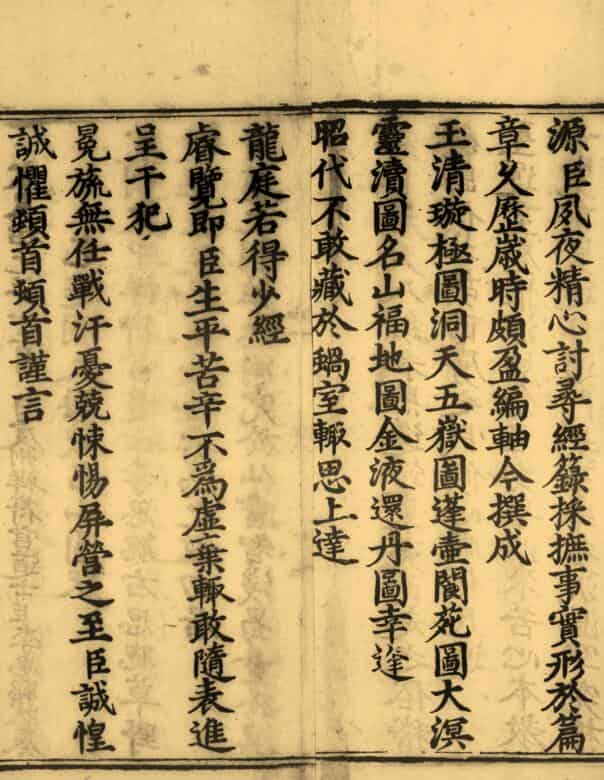 源臣夙夜精心討尋經籙採摭事實形於篇
章久歷歲時頗盈編軸今撰成
玉清璇極圖洞天五嶽圖蓬壺閬苑圖大溟
靈瀆圖名山福地圖金液還丹圖幸逢
昭代不敢藏於蝸室輙思上達
龍庭若得少經
睿覽即臣生平苦辛不爲虛棄輙敢隨表進
呈干犯
冕旒無任戰汗憂兢悚惕屏營之至臣誠惶
誠懼頓首頓首謹言